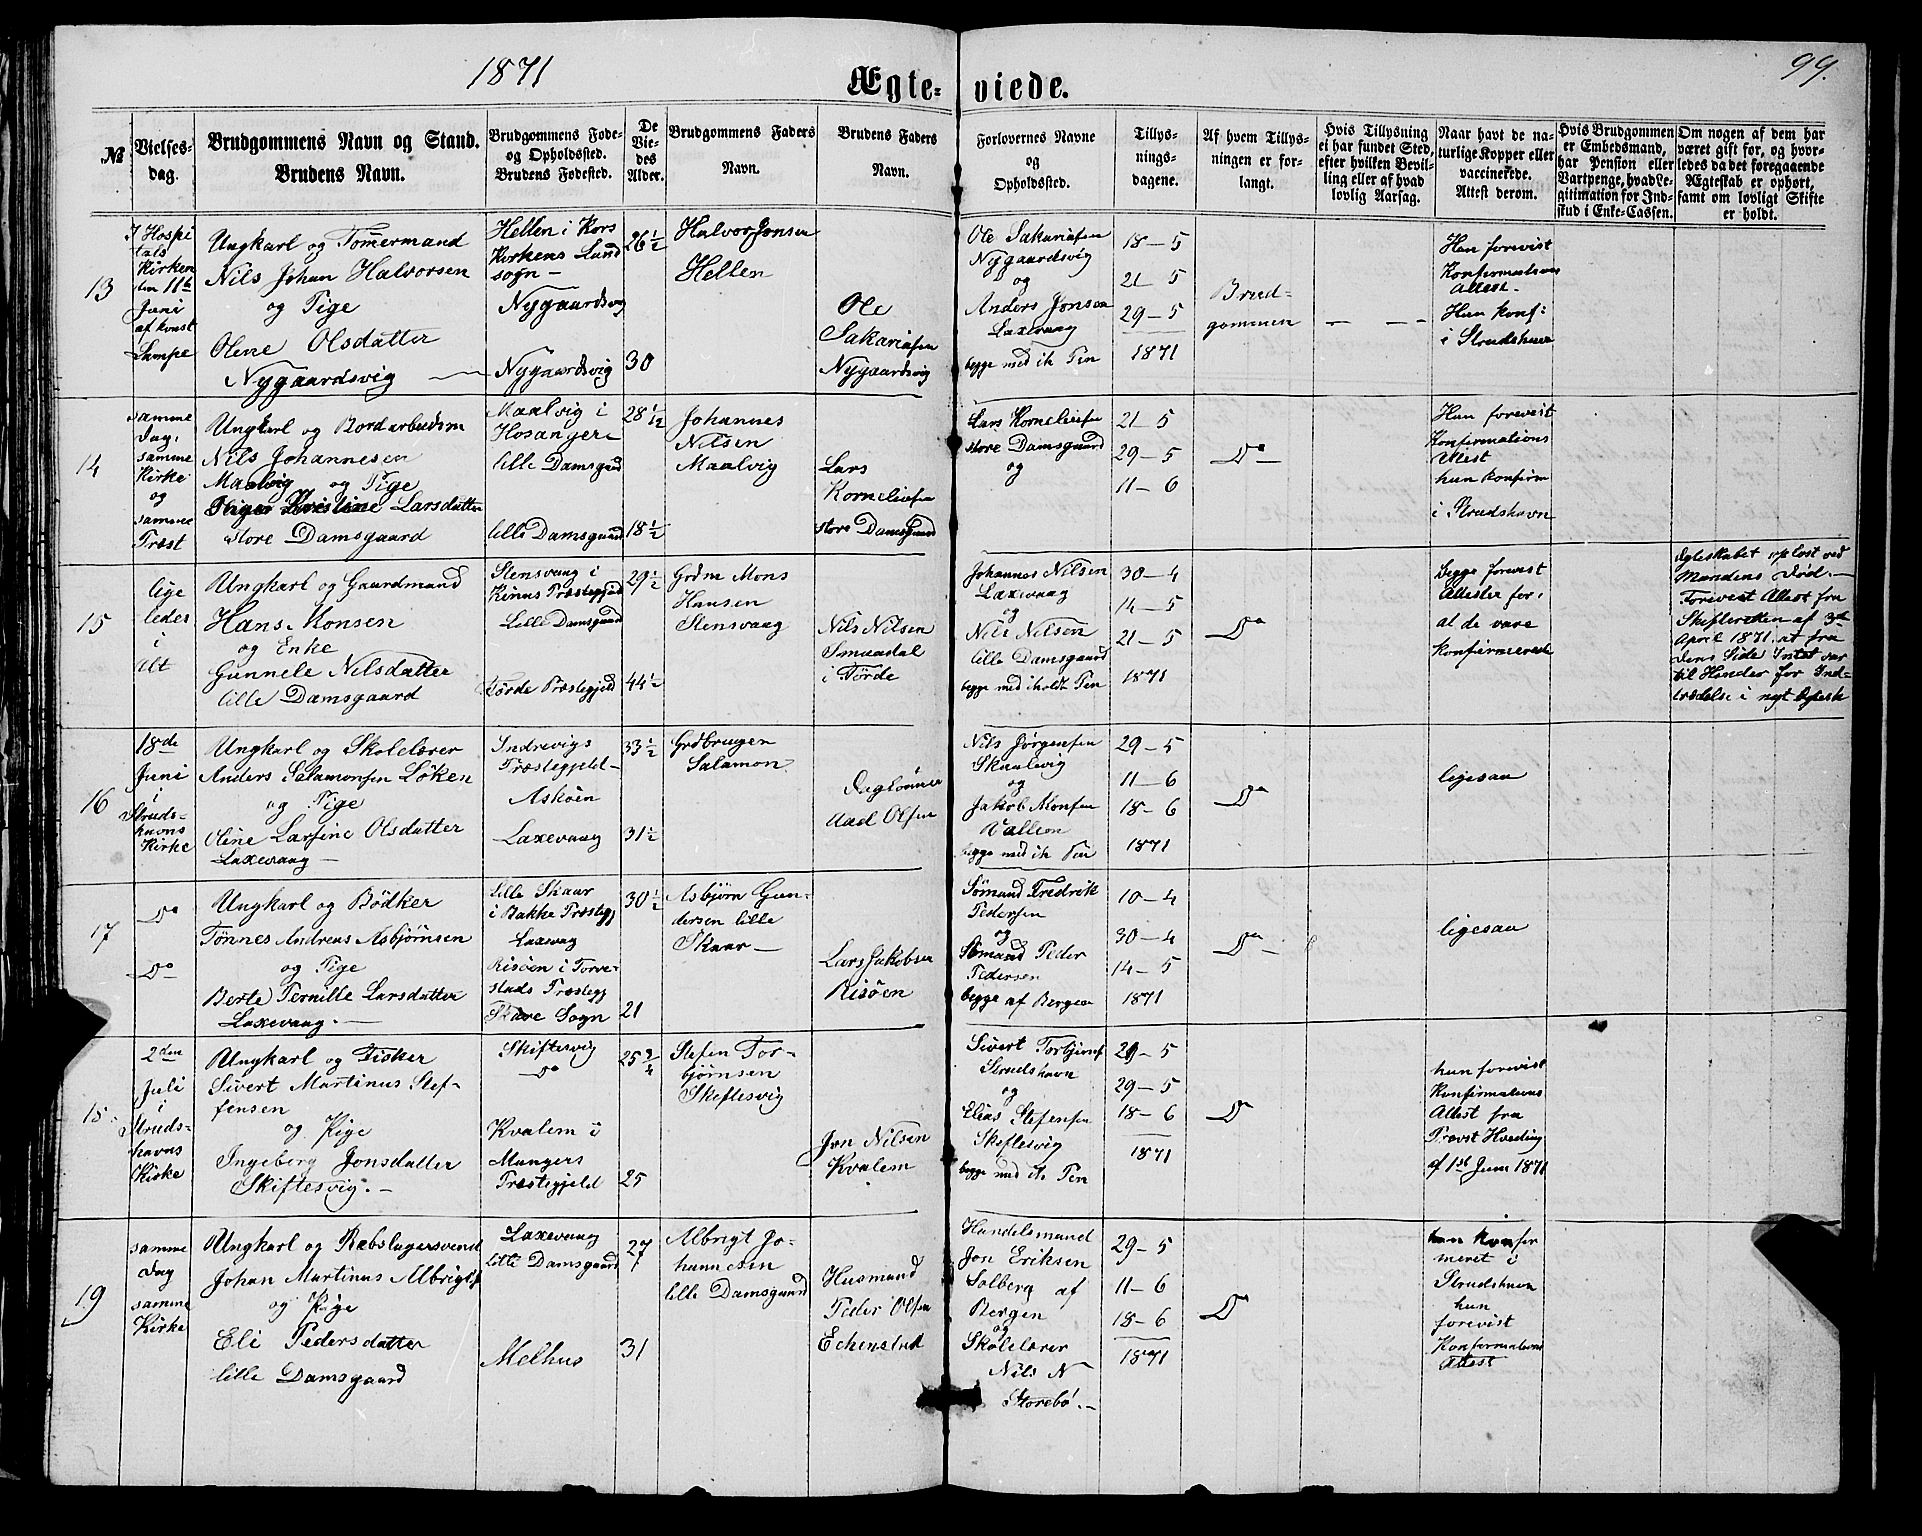 1871
Ægte-
viede.
99.
№
Vielses-
dag.
Brudgommens Navn og Stand.
Brudens Navn.
Brudgommens Føde-
og Opholdssted.
Brudens Fødested.
De
Vie-
des
Alder.
Brudgommens Faders
Navn.
Brudens Faders
Navn.
Forlovernes Navne
og
Opholdssted.
Tillys-
nings-
dagene.
Af hvem Tillys-
ningen er for-
langt.
Hvis Tillysning
ei har fundet Sted,
efter hvilken Bevil-
ling eller af hvad
lovlig Aarsag.
Naar havt de na-
turlige Kopper eller
vaccinerede.
Attest derom.
Hvis Brudgommen
er Embedsmand,
har Pension eller
Vartpenge, hvad Le-
gitimation for Ind-
skud i Enke-Cassen.
Om nogen af dem har
været gift før, og hvor-
ledes da det foregaaende
Ægteskab er ophørt,
samt om lovligt Skifte
er holdt.
13
I Hospi
tals
Kirken
den 11te
Juni
af konst
Lampe
Ungkarl og Tømermand
Nils Johan Halvorsen
og Pige
Olene Olsdatter
Nygaardsvig
Hellen i Kors
Kirkens Land
sogn —
Nygaardsvig
Nygaardsvig
26 ½
30
Halvor Jonsen
Hellen
Ole
Sakariasen
Nygaardsvig
Ole Sakariasen
Nygaardsvig
og
Anders Jonsen
Laxevaag
begge med ih Pen
18 — 5
21 — 5
29 — 5
1871
Brud-
gommen
— — —
Han forevist
Konfirmations
Attest.
Hun konf:
i Strudshavn
14
samme
Dag,
samme
Kirke
og
samme
Præst
Ungkarl og Bordarbeidsm
Nils Johannesen
Maalvig og Pige
Kristine Larsdatter
store Damsgaard
Maalvig i
Hosanger
lille Damsgaard
lille Damsgaard
28 1/12
18 ½
Johannes
Nilsen
Maalvig
Lars
Korneliusen
store Damsgaard
Lars Korneliusen
store Damsgaard
og
21 — 5
29 — 5
11 — 6
Do —
Han forevist
Konfirmations
Attest
hun konfirm
i Strudshavn
15
lige
ledes
i
Alt
Ungkarl og Gaardmand
Hans Monsen
og Enke
Gunnele Nilsdatter
lille Damsgaard
Stensvaag i
Kinns Præstegjeld
Lille Damsgaard
Førde Præstegjeld
29 ½
44 ½
Grdm Mons
Hansen
Stensvaag
Nils Nilsen
Smaadal
i Førde
Johannes Nilsen
Laxevaag
og
Nils Nilsen
lille Damsgaard
begge med iholdt Pen
30 — 4
14 — 5
21 — 5
1871
Do
begge forevist
Attester for,
at de vare
konfirmerede
Ægteskabet opløst ved
Mandens Død. —
Forevist Attest fra
Skifteretten af 3die
April 1871, at fra
dens Side Intet var
til Hinder for Ind-
trædelse i nyt Ægtesk
16
18de
Juni
i
Struds-
havns
Kirke
Ungkarl og Skolelærer
Anders Salamonsen Løken
og Pige
Oline Larsine Olsdatter
Laxevaag —
Indrevigs
Præstegjeld —
Askøen
Laxevaag
33 ½
31 ½
Grdbruger
Salamon
Daglønner
Aad Olsen
Nils Jørgensen
Skaalevig
og
Jakob Monsen
begge med ih Pen
29 — 5
11 — 6
18 — 6
1871
Do
ligesaa
17
Do
Do
Ungkarl og Bødker
Tønnes Andreas Asbjørnsen
og Pige
Berte Pernille Larsdatter
Laxevaag. —
Lille Skaar
i Bakke Præstegj
Laxevaag
Risøen i Torve-
stads Præstegj
Skaare Sogn
30 ½
21
Asbjørn Gun-
dersen lille
Skaar —
Lars Jakobsen
Risøen
Sømand Fredrik
Pedersen
og
Sømand Peder
Pedersen
begge af Bergen
10 — 4
30 — 4
14 — 5
1871
Do
ligesaa
18
2den
Juli
i
Struds-
havns
Kirke
Ungkarl og Fisker
Sivert Martinus Stef-
fensen
og Pige
Ingeborg Jonsdatter
Skiftesvig. —
Skiftesvig
Do
Kvalem i
Mangers
Præstegjeld
25 ¾
25
Stefen Tor-
bjørnsen
Skeftesvig
Jon Nilsen
Kvalem
Sivert Torbjørns
Strudshavn
og
Elias Stefensen
Skeftesvig
begge med ih. Pen
21 — 5
29 — 5
18 — 6
1871
Do
hun forevist
Konfirmations
Attest fra
Provst Hvoding
af 1ste Juni 1871
19
samme
Dag
samme
Kirke
Ungkarl og Rebslagersvend
Johan Martinus Albrigts
og Pige
Eli Pedersdatter
lille Damsgaard
Laxevaag
lille Damsgaard
Melhus
27
31
Albrigt Jo-
hannesen
lille Damsgaard
Husmand
Peder Olsen
Echenstad
Handelsmand
Jon Eriksen
Solberg af
Bergen
og
Skolelærer
Nils N
Storebø. —
29 — 5
11 — 6
18 — 6
1871
Do
han konfir
meret i
Strudshavn
hun
forevist
Konfirmations
Attest